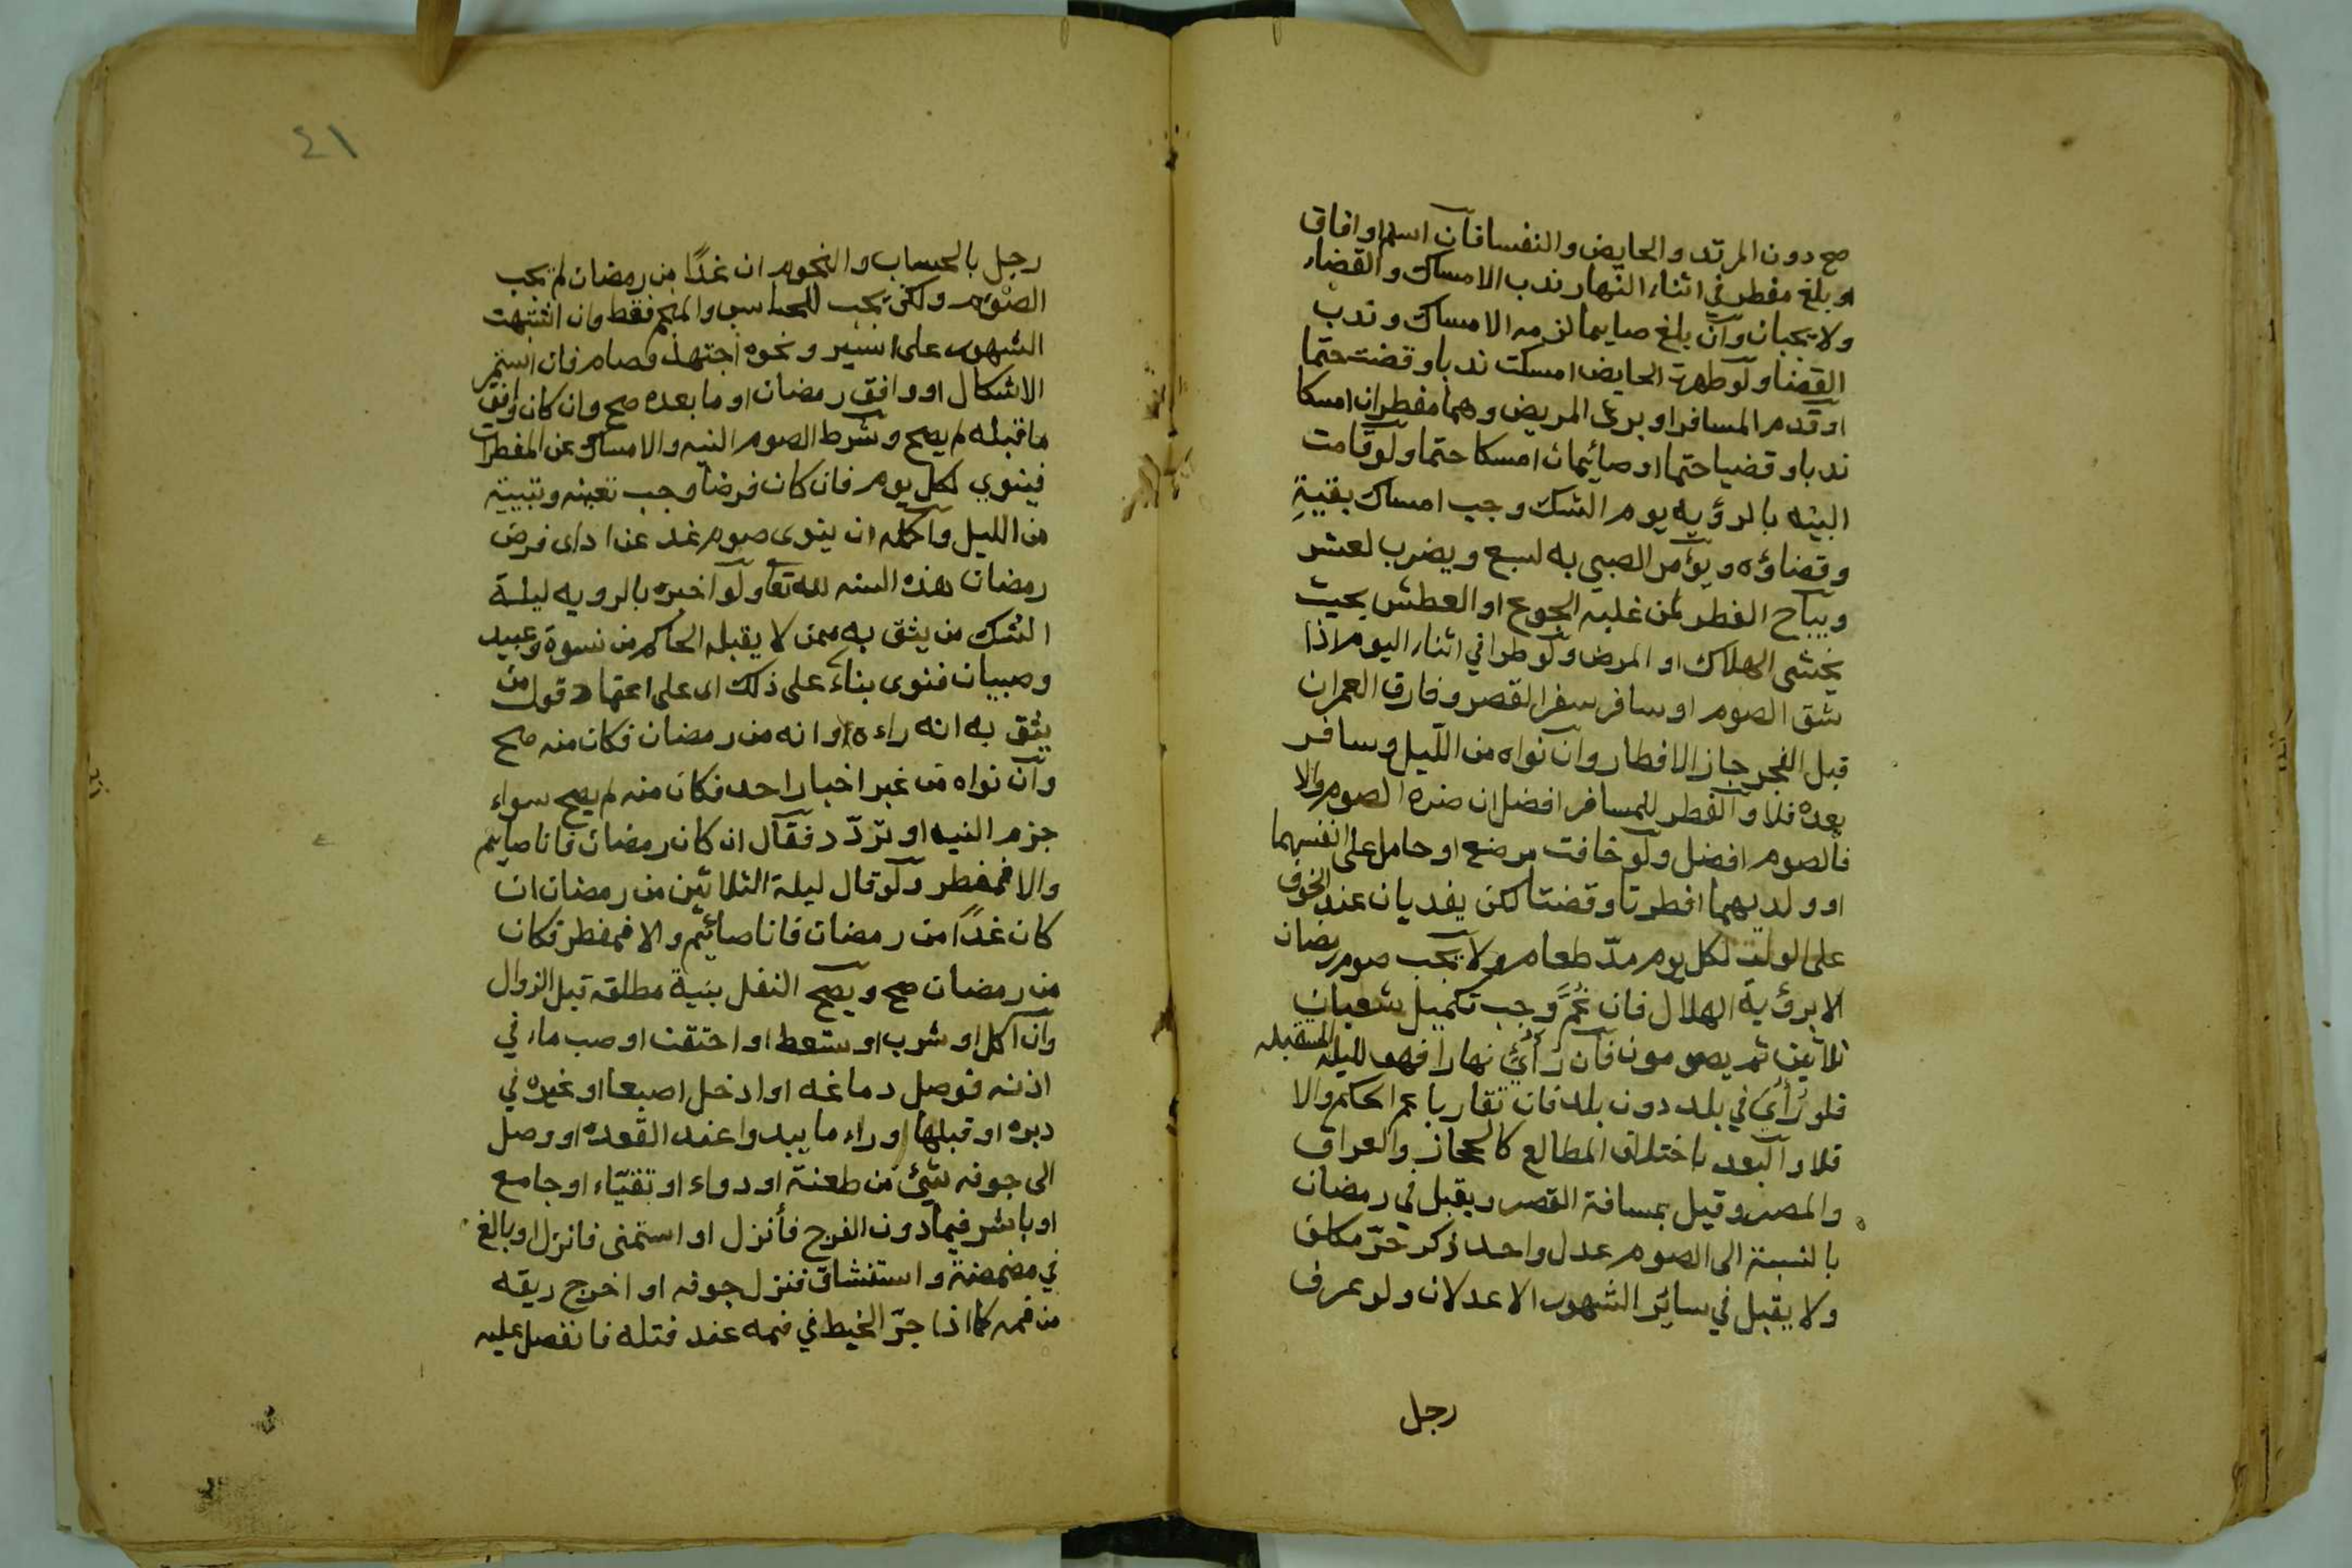 صح دون المرتد والحايض والنفسا فان اسلم او افاق
او بلغ مفطر في اثناء النهار ندب الامساك والقضاء
ولا يجبان وان بلغ صايما لزمه الامساك وندب
القضا ولو طهرت الحايض امسكت ندبا وقضت حتما
او قدم المسافر او برئ المريض وهما مفطران امسكا
ندبا وقضيا حتما او صائيمان امسكا حتما ولو قامت
البينه بالرؤيه يوم الشك وجب امساك بقيةِ
وقضاؤه ويؤمر الصبي به لسبع ويضرب لعشر
ويباح الفطر لمن غلبه الجوع او العطش بحيث
يخشى الهلاك او المرض ولو طرا في اثناء اليوم اذا
شق الصوم او سافر سفر القصر وفارق العمران
قبل الفجر جاز الافطار وان نواه من اللّيل وسافر
بعده فلا والفطر للمسافر افضل ان ضره الصوم والا
فالصوم افضل ولو خافت مرضع او حامل على انفسهما
او ولديهما افطرتا وقضتا لكن يفديان عند الخوف
على الولد لكل يوم مدّ طعام ولا يجب صوم رمضان
الا برؤية الهلال فان غُمَّ وجب تكميل شعبان
ثلاثين ثم يصومون فان رُأيَ نهارا فهو لليله المستقبله
فلو رُأيَ في بلد دون بلد فان تقاربا عم الحكم والا
فلا والبعد باختلاف المطالع كالحجاز والعراق
والمصر وقيل بمسافة القصر ويقبل في رمضان
بالنسبة الى الصوم عدل واحد ذكر حرّ مكلف
ولا يقبل في سائر الشهور الا عدلان ولو عرف
رجل
٤١
رجل بالحساب والنجوم ان غدًا من رمضان لم يجب
الصّوم ولكن يجب للحاسب والمنجم فقط وان اشتبهت
الشهور على اسير ونحوه اجتهد وصام فان استمر
الاشكال او وافق رمضان او ما بعده صح وان كان وافق
ما قبله لم يصح وشرط الصوم النيه والامساك عن المفطرات
فينوي لكل يوم فان كان فرضا وجب تعينه وتبييته
من الليل واكمله ان ينوى صوم غد عن اداى فرض
رمضان هذه السنه لله تعا ولو اخبره بالرويه ليلة
الشك من يثق به ممن لا يقبله الحاكم من نسوة وعبيد
وصبيان فنوى بناءً على ذلك اى على اعتماد قول من
يثق به انه راءه او انه من رمضان فكان منه صح
وان نواه من غير اخبار احد فكان منه لم يصح سواء
جزم النيه او تردّد فقال ان كان رمضان فانا صايم
والا فمفطر ولو قال ليلة الثلاثين من رمضان ان
كان غدًا من رمضان فانا صائيم والا فمفطر فكان
من رمضان صح ويصح النفل بنية مطلقه قبل الزوال
وان اكل او شرب او ستعط او احتقن او صب ماء في
اذنه فوصل دماغه او ادخل اصبعا او غيره في
دبره او قبلها وراء ما يبدوا عند القعده او وصل
الى جوفه شيئ من طعنة او دواء او تقيّاء او جامع
او باشر فيما دون الفرج فأنزل او استمنى فانزل او بالغ
في مضمضة واستنشاق فنزل جوفه او اخرج ريقه
من فمه كما اذا جرّ الخيط في فمه عند فتله فانفصل عليه